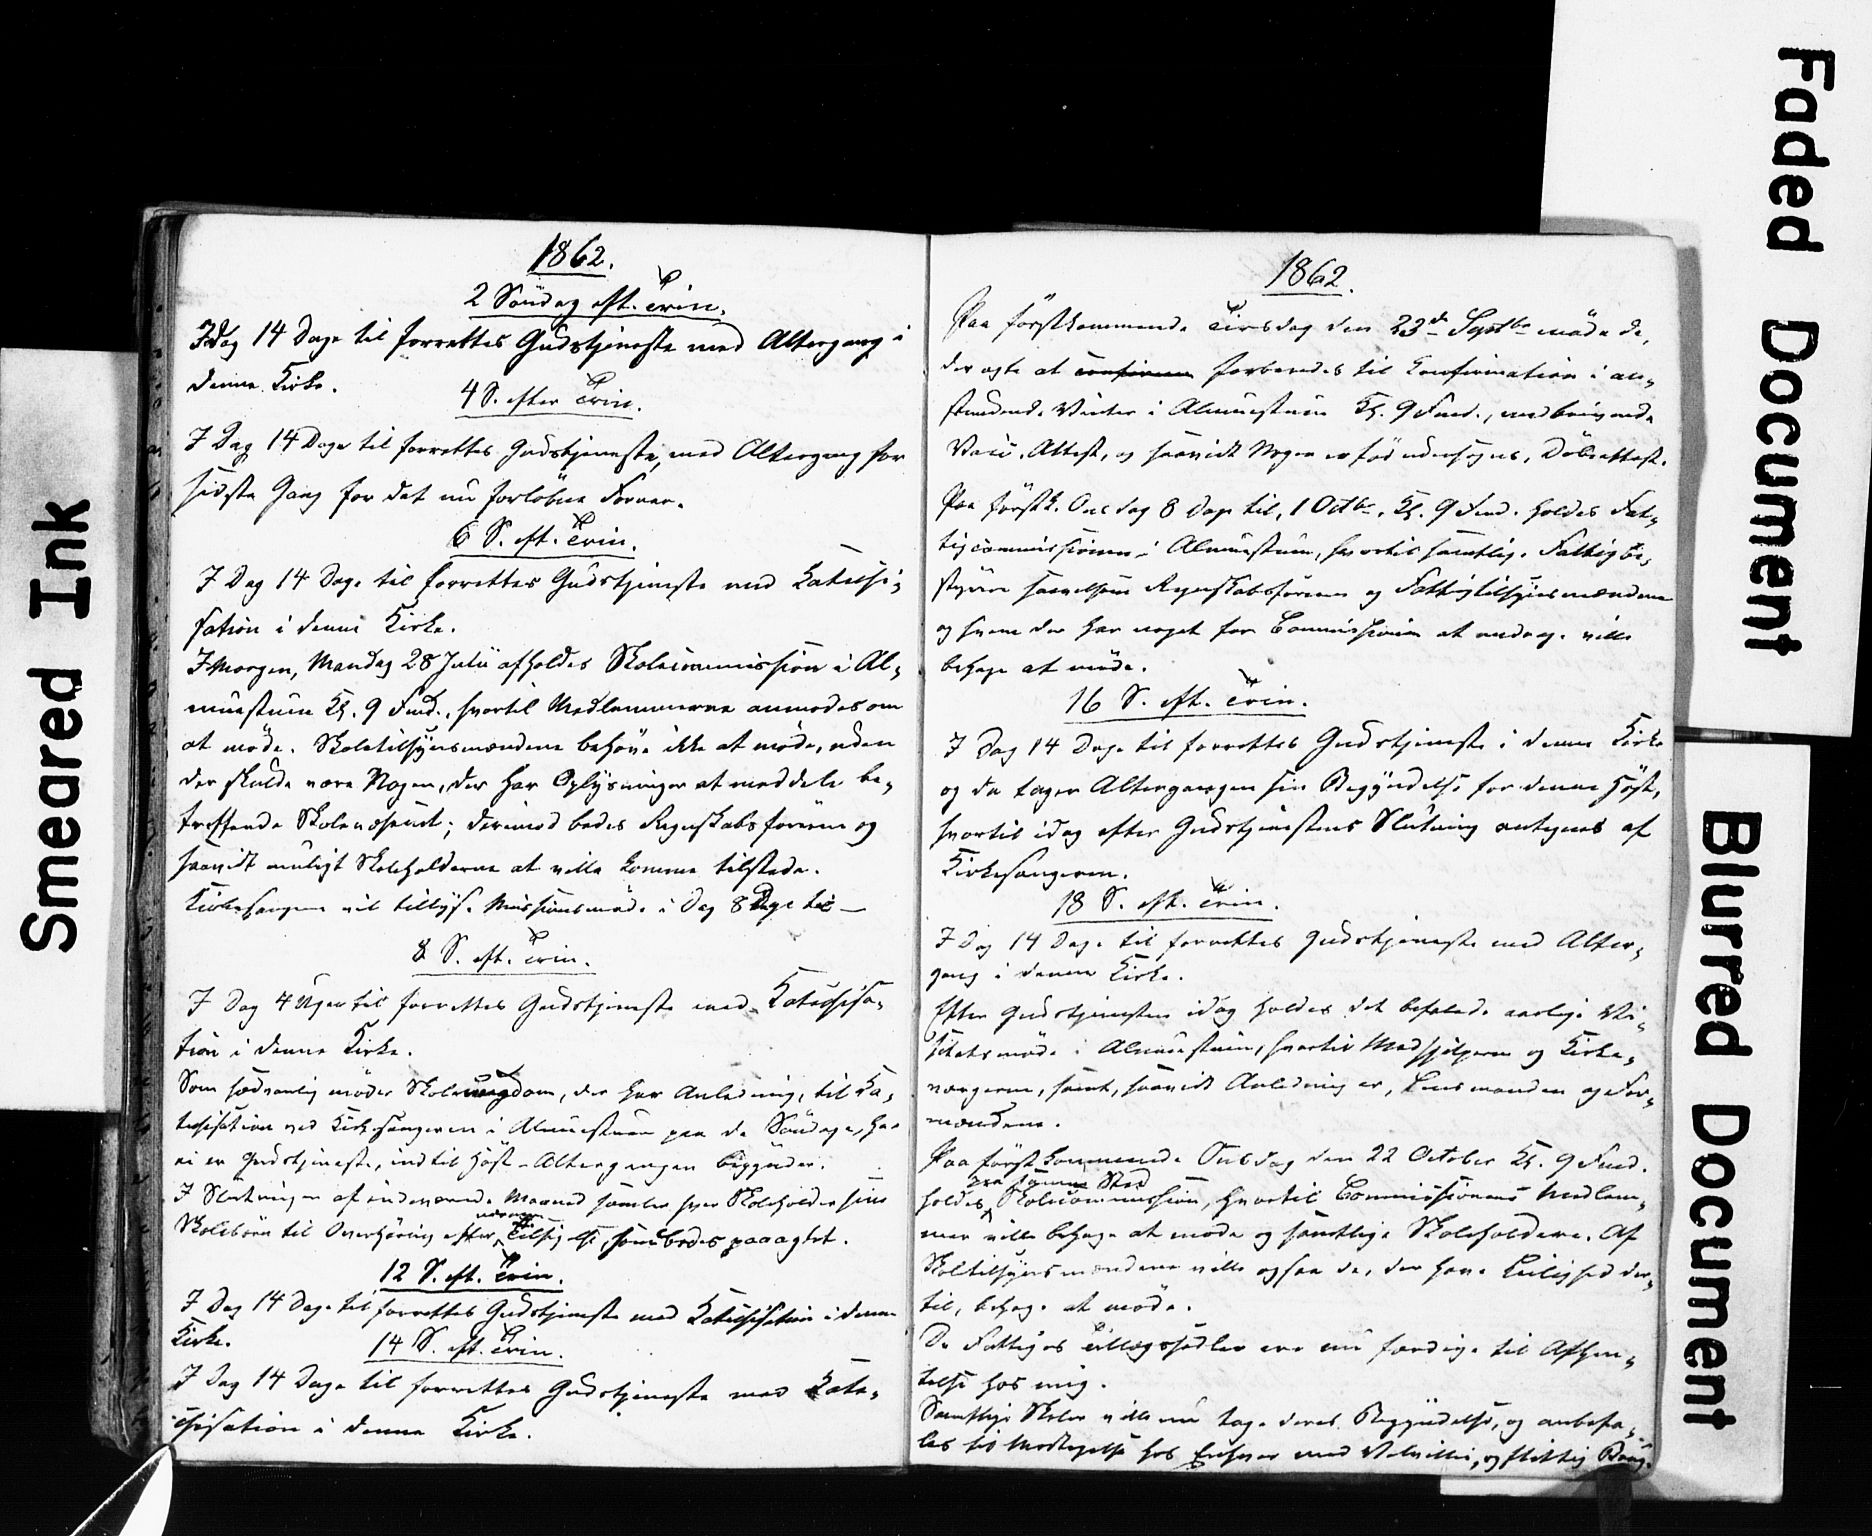 1862.
2 Søndag eft. Trin.
I Dag 14 Dage til forrettes Gudstjeneste med Altergang i
denne Kirke.
4 S. efter Trin.
I Dag 14 Dage til forrettes Gudstjeneste, med Altergang for
sidste Gang for det nu forløbne Foraar.
6 S. eft. Trin.
I Dag 14 Dage til forrettes Gudstjeneste med Katechi-
sation i denne Kirke.
I Morgen, Mandag 28 Julii afholdes Skolecommission i Al-
muestuen Kl. 9 Formd., hvortil Medlemmerne anmodes om
at møde. Skoletilsynsmændene behøve ikke at møde, uden
der skulde være Nogen, der har Oplysninger at meddele be-
træffende Skolevæsenet; derimod bedes Regnskabsføreren og
saavidt muligt Skoleholderne at ville komme tilstede.
Kirkesangeren vil tillyse Missionsmøde i Dag 8 Dage til —
8 S. eft. Trin.
I Dag 4 Uger til forrettes Gudstjeneste med Katechisa-
tion i denne Kirke.
Som sædvanlig møder Skoleungdom, der har Anledning, til Ka-
techisation ved Kirkesangeren i Almuestuen paa de Søndage, her
ei er Gudstjeneste, indtil Høst-Altergangen begynder.
I Slutningen af indeværende Maaned samler hver Skoleholder sine
Skolebørn til Overhøring efter nærmere Tilsigelse, som bedes paaagtet.
12 S. eft. Trin.
I Dag 14 Dage til forrettes Gudstjeneste med Katechisation i denne
Kirke.
14 S. eft. Trin.
I Dag 14 Dage til forrettes Gudstjeneste med Kate-
chisation i denne Kirke.
1862.
Paa førstkommende Tirsdag den 23de Septbr møde de,
der agte at confirmere forberedes til Konfirmation i an-
stundende Vinter i Almuestuen Kl. 9 Formd., medbringende
Vacc. Attest, og saavidt Nogen er fød udensogns, Døbeattest.
Paa førstk. Onsdag 8 Dage til, 1 Octbr, Kl. 9 Formd. holdes Fat-
tigcommissionen i Almuestuen, hvortil samtlige Fattigbe-
styrere saavelsom Regnskabsføreren og Fattigtilsynsmændene
og hvem der har noget for Commissionen at andrage ville
behage at møde.
16 S. eft. Trin.
I Dag 14 Dage til forrettes Gudstjeneste i denne Kirke
og da tager Altergangen sin Begyndelse for denne Høst,
hvortil idag efter Gudstjenestens Slutning antegnes af
Kirkesangeren.
18 S. eft. Trin.
I Dag 14 Dage til forrettes Gudstjeneste med Alter-
gang i denne Kirke.
Efter Gudstjenesten idag holdes det befalede aarlige Vi-
sitatsmøde i Almuestuen, hvortil Medhjelperne og Kirke-
værgerne, samt, saavidt Anledning er, Lensmanden og For-
mændene.
Paa førstkommende Onsdag den 22 October Kl. 9 Formd.
holdes paa samme Sted Skolecommission, hvortil Commissionens Medlem-
mer ville behage at møde og samtlige Skoleholdere. Af
Skoletilsynsmændene ville ogsaa de, der have Leilighed der-
til, behage at møde.
De Fattiges Tillægssedler ere nu færdige til Afhen-
telse hos mig.
Samtlige Skoler ville nu tage deres Begyndelse, og anbefa-
les til Modtagelse hos Enhver med Velvillie, og flittig Brug.
Smeared Ink
Faded Document
Blurred Document